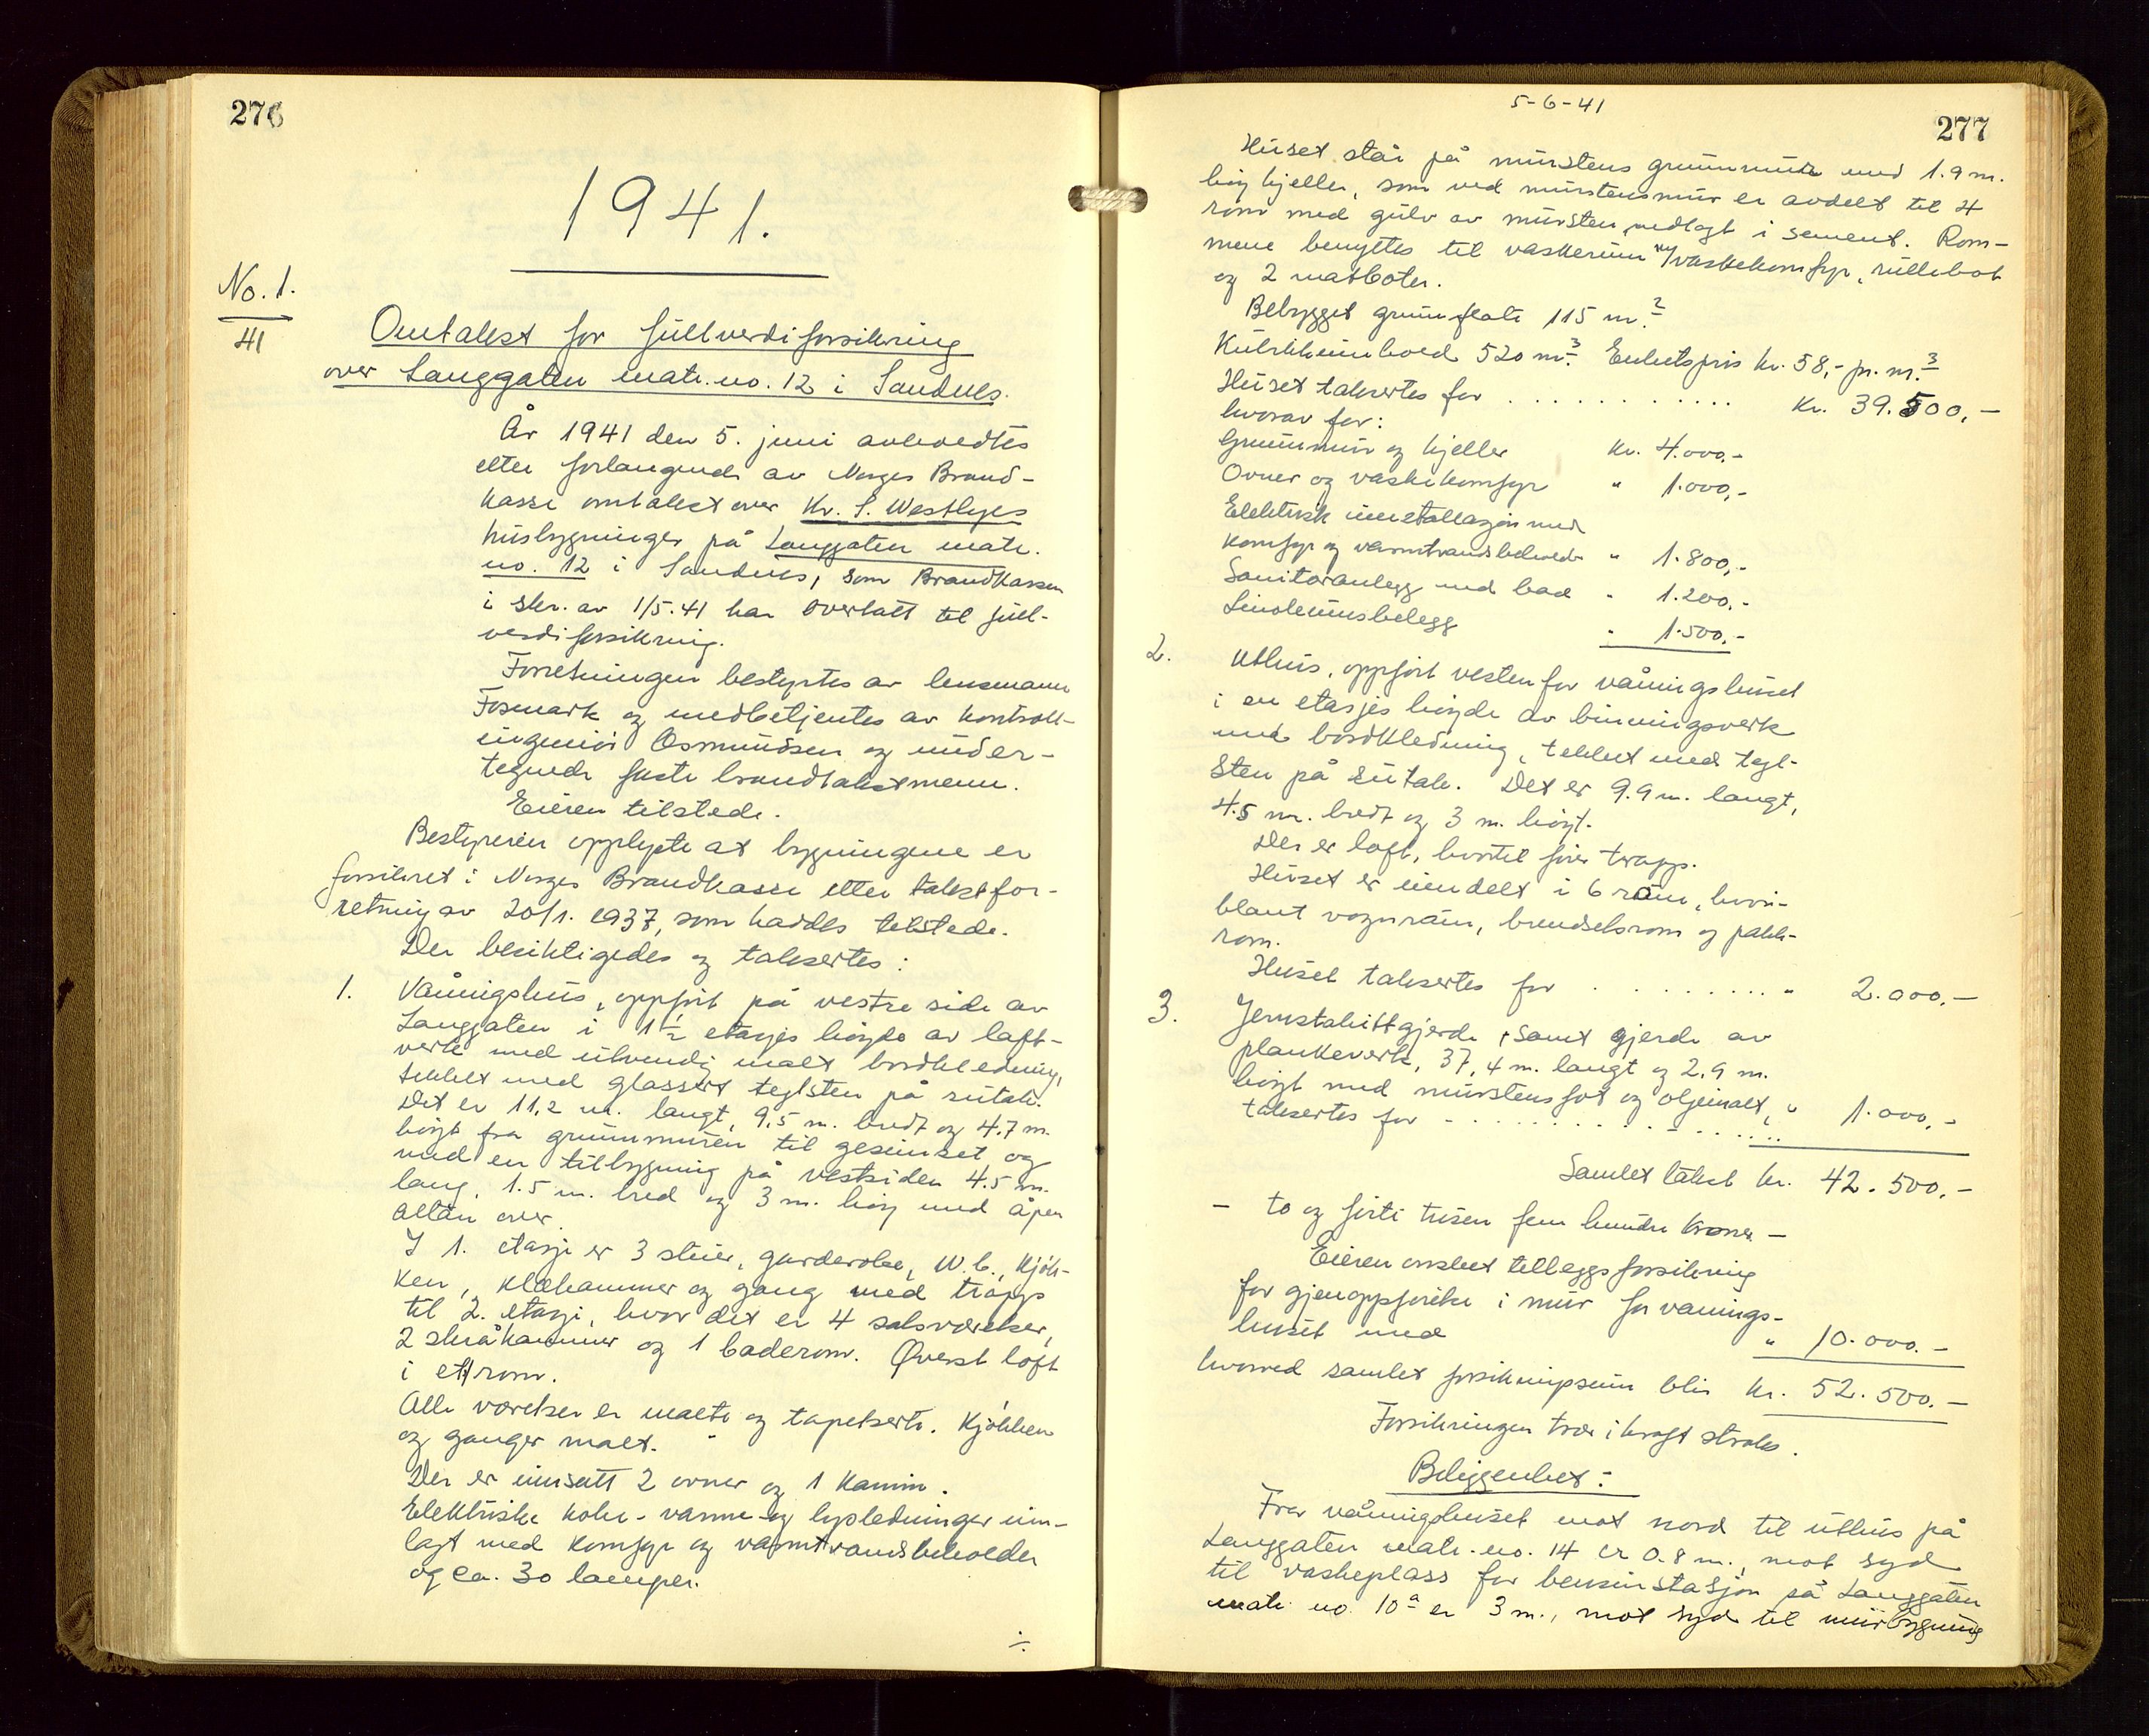 276
1941.
No. 1.
41
Omtakst for fullverdiforsikring
over Langgaten matr. no. 12 i Sandnes.
År 1941 den 5. juni avholdtes
etter forlangende av Norges Brand-
kasse omtakst over Kr. S. Westlyes
husbygninger på Langgaten matr.
no. 12 i Sandnes, som Brandkassen
i skr. av 1/5.41 har overlatt til full-
verdiforsikring.
Forretningen bestyrtes av lensmann
Fosmark og medbetjentes av kontroll-
ingeniör Osmundsen og under-
tegnede faste brandtakstmenn.
Eieren tilstede.
Bestyreren opplyste at bygningene er
forsikret i Norges Brandkasse etter takstfor-
retning av 20/1. 1937, som haddes tilstede.
Der besiktigedes og taksertes:
1. Våningshus, oppfört på vestre side av
Langgaten i 1 1/2 etasjes höyde av laft-
verk med utvendig malt bordkledning,
tekket med glassert teglsten på sutak.
Det er 11,2 m. langt, 9,5 m. bredt og 4.7 m.
höyt fra grunnmuren til gesimset og
med en tilbygning på vestsiden 4.5 m.
lang, 1.5 m. bred og 3 m. höy med åpen
altan over.
I 1. etasje er 3 stuer, garderobe, W.C., Kjök-
ken, klækammer og gang med trapp
til 2. etasje, hvor det er 4 soveværelser,
2 skråkammer og 1 baderom. Øverst loft
i ett rom.
Alle værelser er malte og tapetserte. Kjökken
og ganger malt.
Der er innsatt 2 ovner og 1 kamin.
Elektriske koke- varme- og lysledninger inn-
lagt med komfyr og varmtvandsbeholder
og ca. 30 lamper.
÷
5-6-41
277
Huset står på murstens grunnmur med 1.9 m.
höy kjeller, som ved murstensmur er avdelt til 4
rom med gulv av mursten nedlagt i sement. Rom-
mene benyttes til vaskerum m/vaskekomfyr, rullebod
og 2 matboter.
Bebygget grunnflate 115 m.2
Kubikkinnhold 520 m.3 Enhetspris kr. 58,- pr. m.3
Huset taksertes for . . . . . . . . . . . Kr. 39.500,-
hvorav for:
Grunnmur og kjeller Kr. 4.000.-
Ovner og vaskekomfyr " 1.000,-
Elektrisk innstallasjon med
komfyr og varmtvandsbeholder " 1.800,-
Sanitæranlegg med bad " 1.200,-
Linoleumsbelegg " 1.500,-
2. Uthus, oppfört vestenfor våningshuset
i en etasjes höyde av binningsverk
med bordkledning, tekket med tegl-
sten på sutak. Det er 9.9 m. langt,
4.5 m. bredt og 3 m. höyt.
Der er loft, hvortil förer trapp.
Huset er inndelt i 6 rom, hvori-
blant vognrom, brendselsrom og pakk-
rom.
Huset taksertes for . . . . . . . . . " 2.000,-
3. Jernstakittgjerde, samt gjerde av
plankeverk, 37,4 m. langt og 2,9 m.
höyt med murstensfot og oljemalt,
taksertes for . . . . . . . . . . " 1.000,-
Samlet takst kr. 42.500,-
- to og förti tusen fem hundre kroner -
Eieren ønsket tilleggsforsikring
for gjenoppförelse i mur for vånings-
huset med " 10.000.-
hvorved samlet forsikringssum blir Kr. 52.500.-
Forsikringen trær i kraft straks.
Beliggenhet:
Fra våningshuset mot nord til uthus på
Langgaten matr. no. 14 er 0.8 m., mot syd
til vaskeplass for bensinstasjon på Langgaten
matr. no. 10a er 3 m., mot syd til murbygning